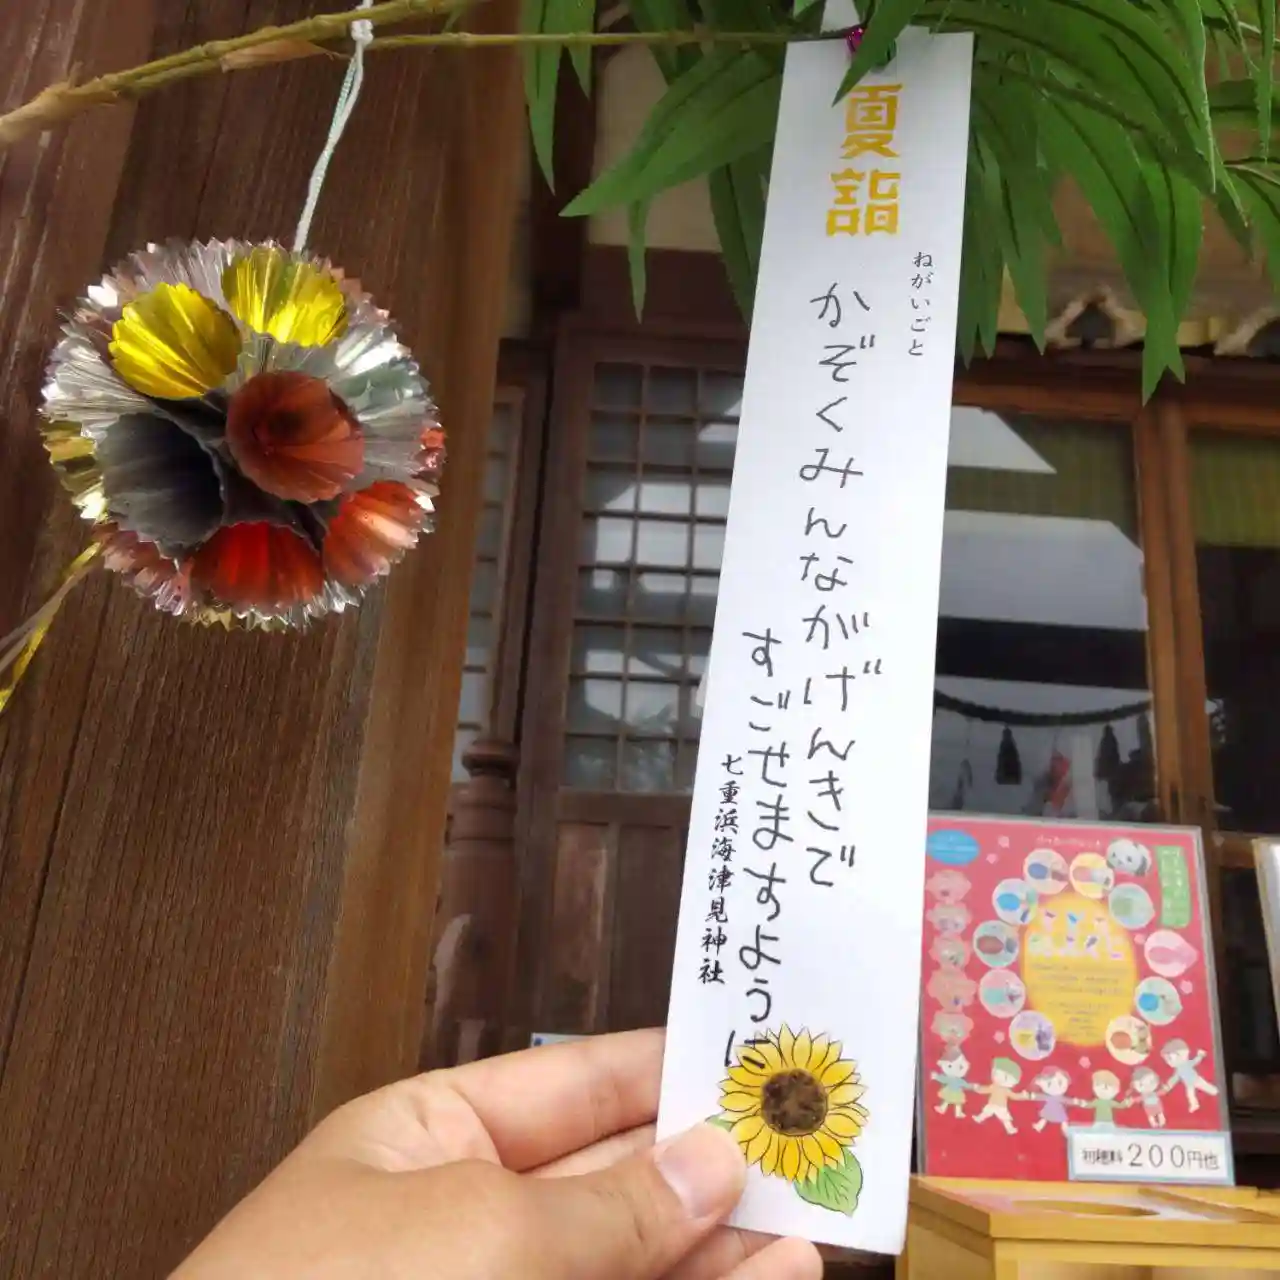 夏詣
ねがいごと
かぞくみんながげんきで
すごせますように
七重浜海津見神社
初穂料200円也